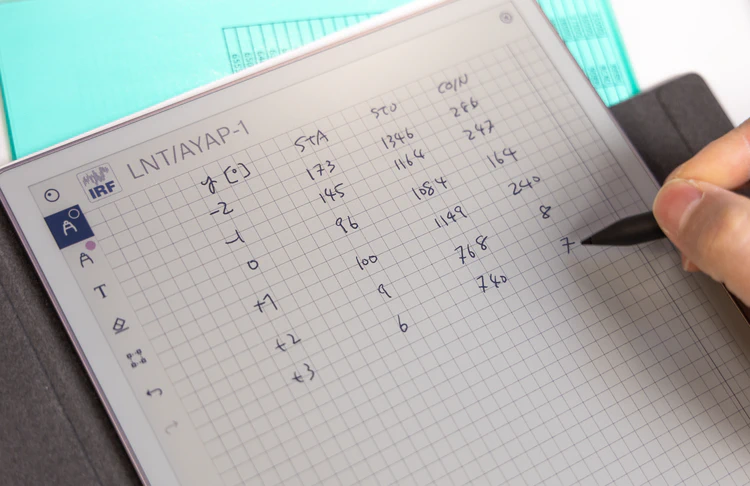 IRF LNT/AYAP-1
y [°] STA STD CO/N
-2 173 1346 286
-1 145 1164 247
0 96 1084 164
+1 100 1149 240
+2 9 768 8
+3 6 740 7
A
A
T